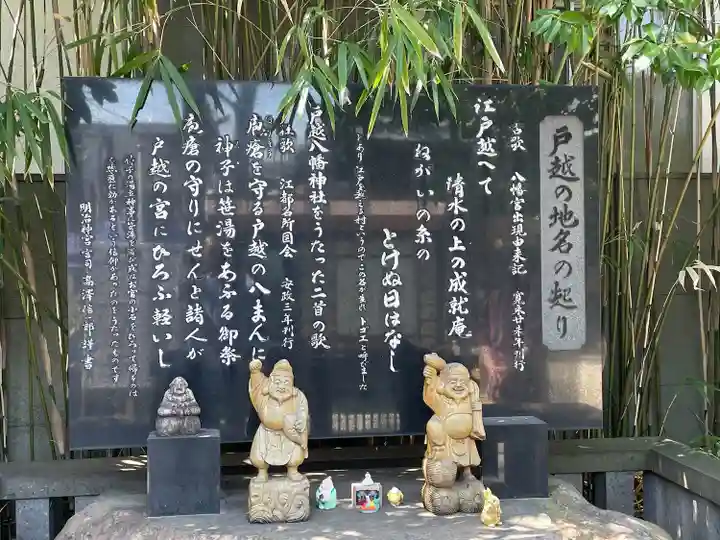 戸越の地名の起り
古歌 八幡宮出現由来記 寛永廿年刊行
江戸越へて
清水の上の成就庵
ねがいの糸の
とけぬ日はなし
とあり 江戸を越える村というのでこの名が生れ トゴエと呼びました
戸越八幡神社をうたった二首の歌
狂歌 江都名所図会 安政三年刊行
疱瘡を守る戸越の八まんに
神子は笹湯をあふる御祭
疱瘡の守りにせんと諸人が
戸越の宮にひろふ軽いし
明治神宮宮司 高澤信一郎謹書